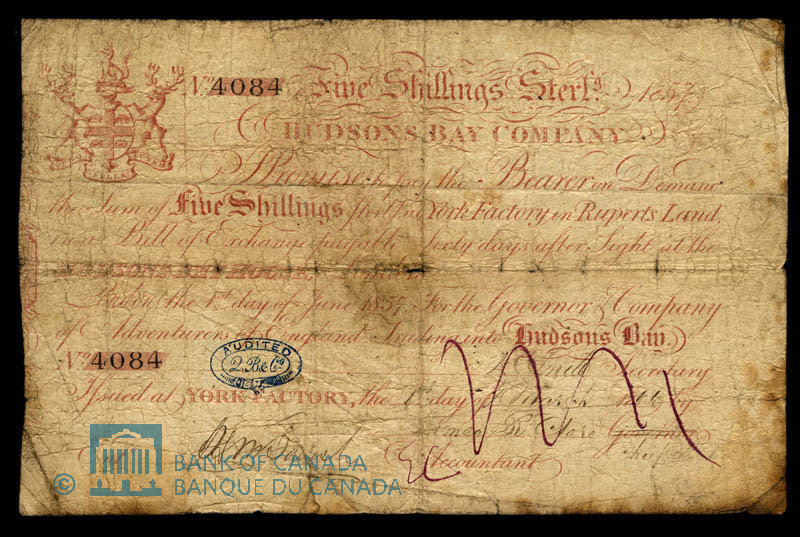 No. 4084 Five Shillings Sterg. 1857
HUDSONS BAY COMPANY
Promise to pay the Bearer on Demand
the Sum of Five Shillings Sterlg. in York Factory in Ruperts Land
in a Bill of Exchange payable Sixty days after Sight at the
HUDSONS BAY HOUSE,
the 1st day of June 1857 For the Governor & Company
of Adventurers of England Trading into Hudsons Bay.
No. 4084
AUDITED
D.B&Co
W Smith Secretary
Issued at YORK FACTORY, the day of by
Governor
Accountant
© BANK OF CANADA
BANQUE DU CANADA